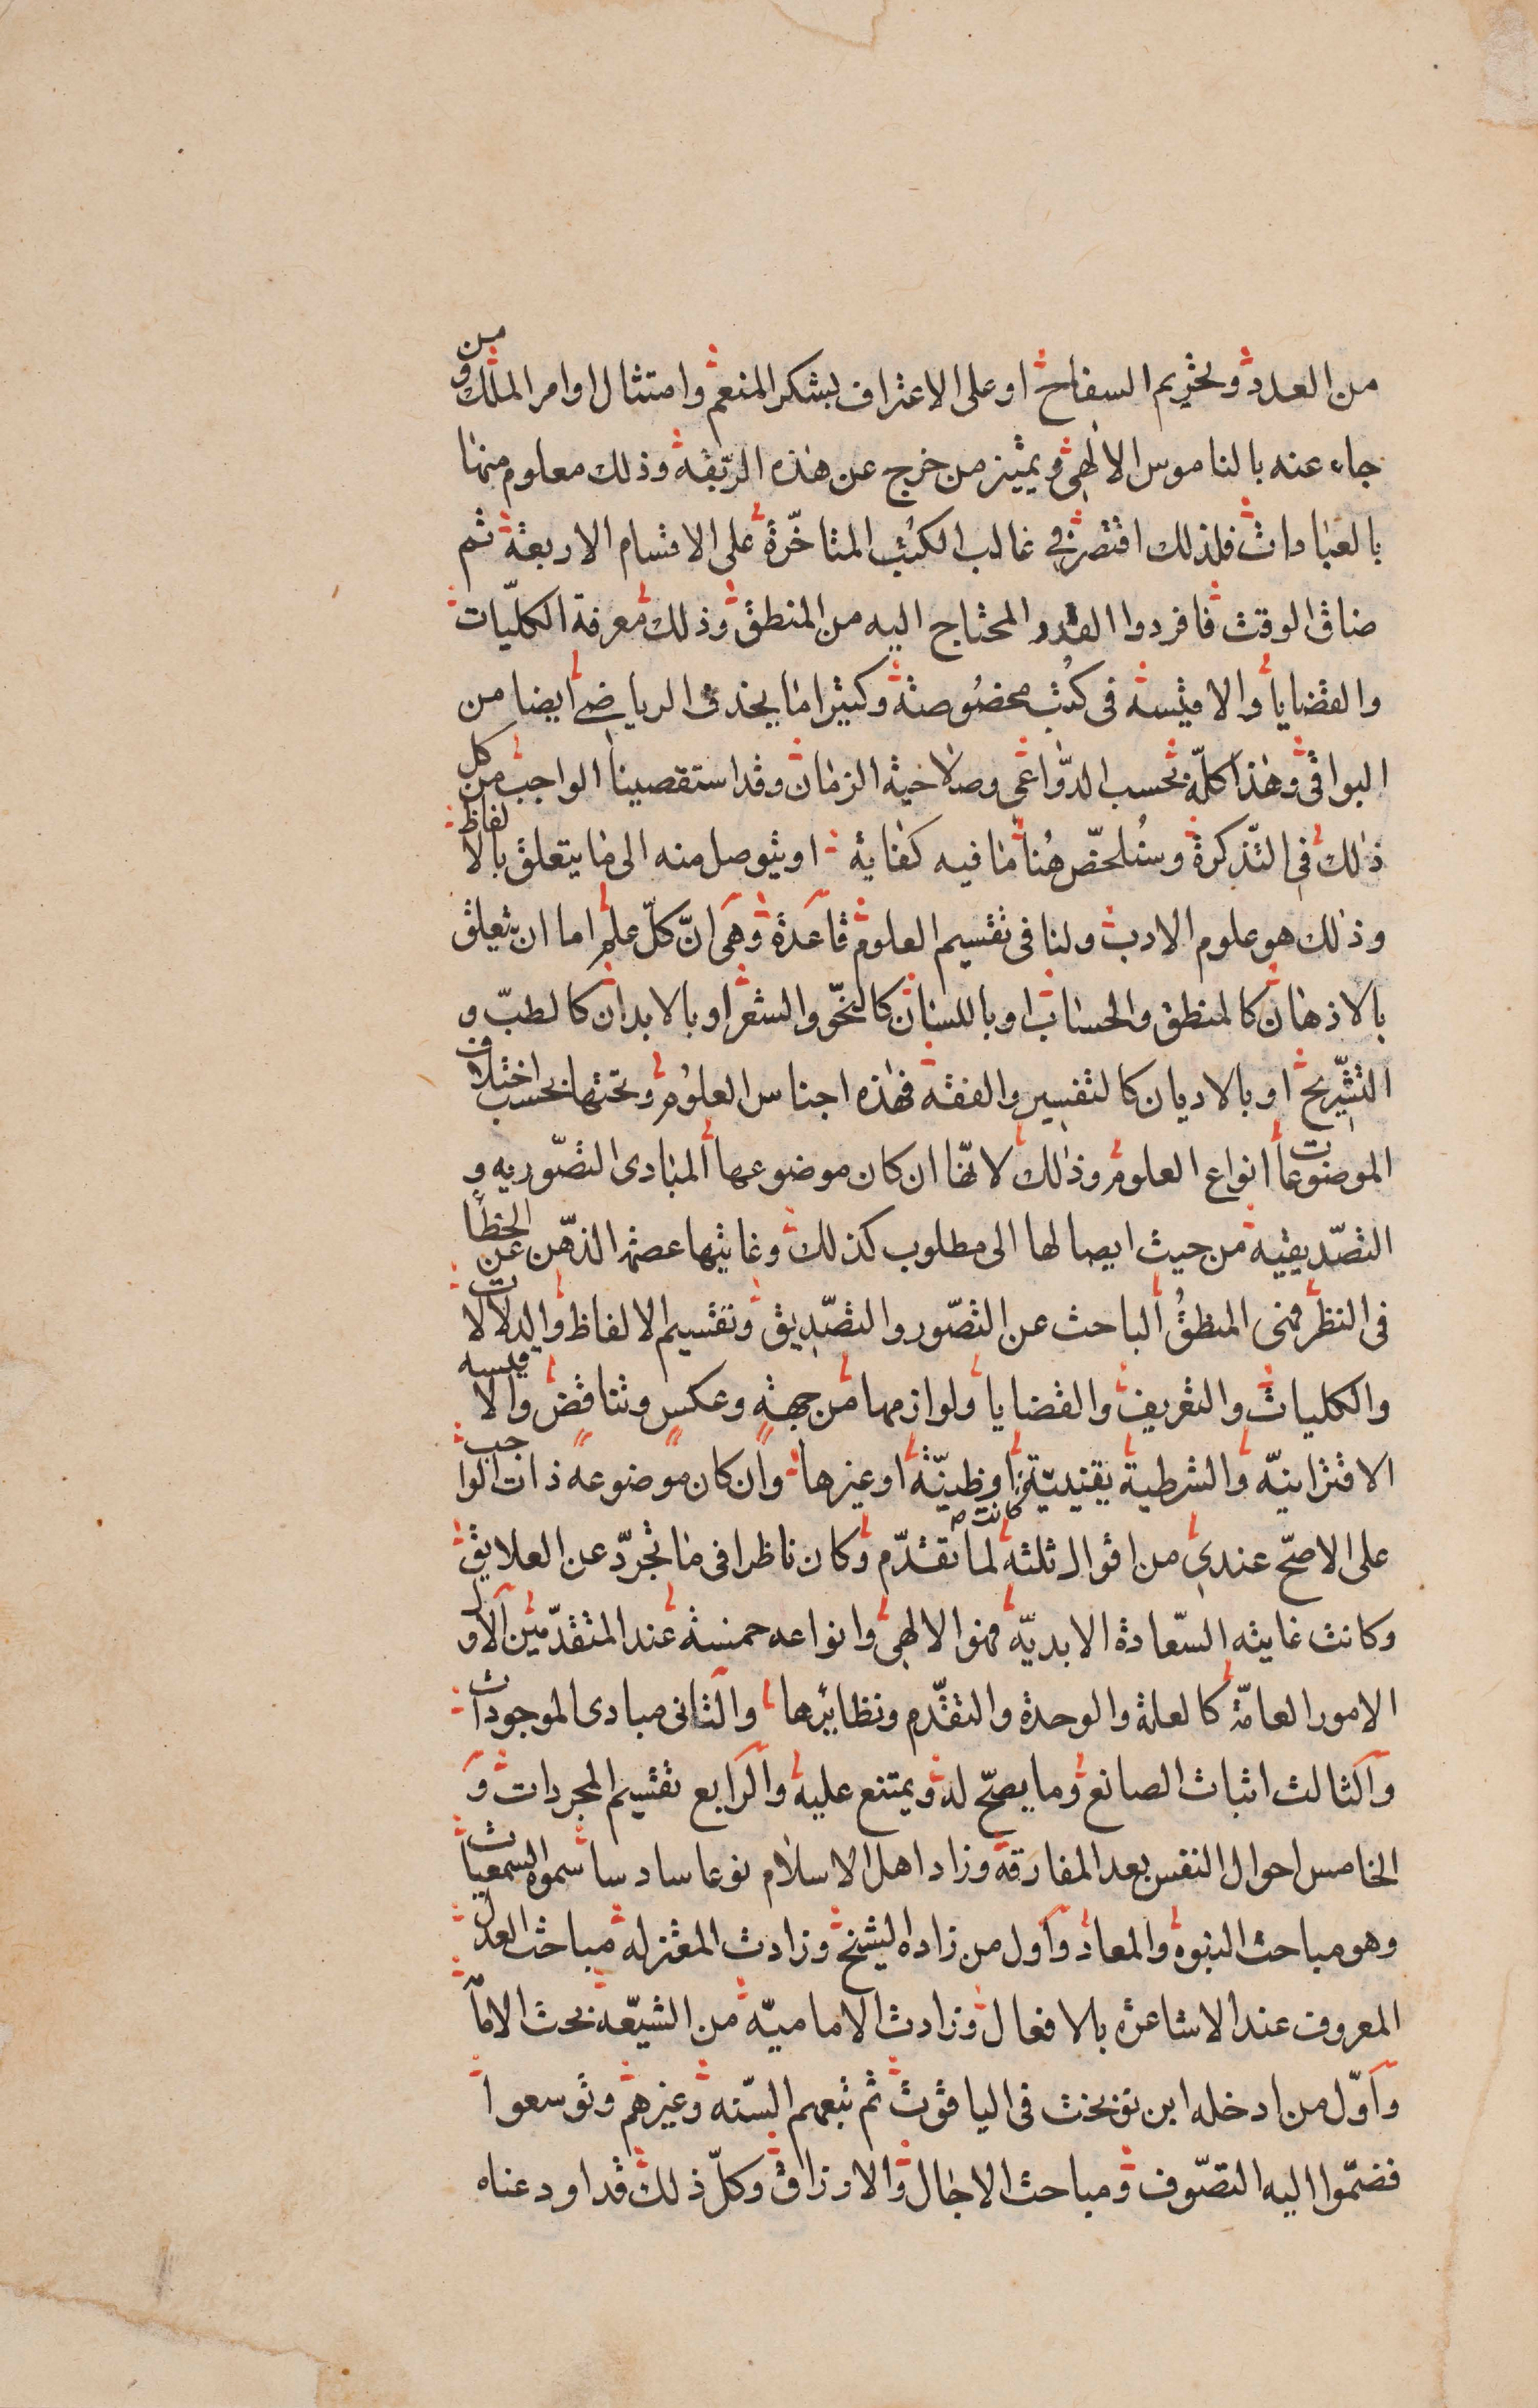 من العدد وتحريم السفاح او على الاعتراف بشكر المنعم وامتثال اوامر الملك ومن
جاء عنه بالناموس الالهى ويميز من خرج عن هذه الربقة وذلك معلوم منها
بالعبادات فلذلك اقتصر فى غالب الكتب المتاخّرة على الاقسام الاربعة ثم
ضاق الوقت فافردوا القدر المحتاج اليه من المنطق وذلك معرفة الكليّات
والقضايا والاقيسه فى كتب مخصوصة وكثيرا ما يحذف الرياضى ايضا من
البواقى وهذا كلّه بحسب الدّواعى وصلاحية الزمان وقد استقصينا الواجب من كل
ذلك فى التّذكرة وسنلخّص هنا ما فيه كفاية او يتوصل منه الى ما يتعلق بالالفاظ
وذلك هو علوم الادب ولنا فى تقسيم العلوم قاعدة وهى انّ كلّ علم اما ان يتعلق
بالاذهان كالمنطق والحساب او باللسان كالنحو والشعر او بالابدان كالطبّ و
التشريح او بالاديان كالتفسير والفقه فهذه اجناس العلوم وتحتها بحسب اختلاف
الموضوعات انواع العلوم وذلك لانّها ان كان موضوعها المبادى التصّوريه و
التصّديقيه من حيث ايصالها الى مطلوب كذلك وغايتها عصمة الذهن عن الخطأ
فى النظر فهى المنطق الباحث عن التصّور والتصّديق وتقسيم الالفاظ والدلالات
والكليات والتعريف والقضايا ولوازمها من جهة وعكس وتناقض والاقيسه
الاقترانيّه والشرطية يقينيّة كانت او ظنيّة او غيرها وان كان موضوعه ذات الواجب
على الاصحّ عندى من اقوال ثلثه لما تقدّم وكان ناظرا فى ما تجرّد عن العلايق
وكانت غايته السّعادة الابديّه فهو الالهى وانواعه خمسة عند المتقدّمين الاول
الامور العامّة كالعلة والوحدة والتقدّم ونظايرها والثانى مبادى الموجودات
والثالث اثبات الصانع وما يصحّ له ويمتنع عليه والرابع تقسيم المجردات و
الخامس احوال النفس بعد المفارقة وزاد اهل الاسلام نوعا سادسا سموه السمعيات
وهو مباحث النبوه والمعاد واول من زاده الشيخ وزادت المعتزله مباحث العدل
المعروف عند الاشاعره بالافعال وزادت الاماميّه من الشيّعه بحث الامامه
واوّل من ادخله ابن نوبخت فى الياقوت ثم تبعهم السّنه وغيرهم وتوسعوا
فضمّوا اليه التصّوف ومباحث الاجال والارزاق وكلّ ذلك قد اودعناه